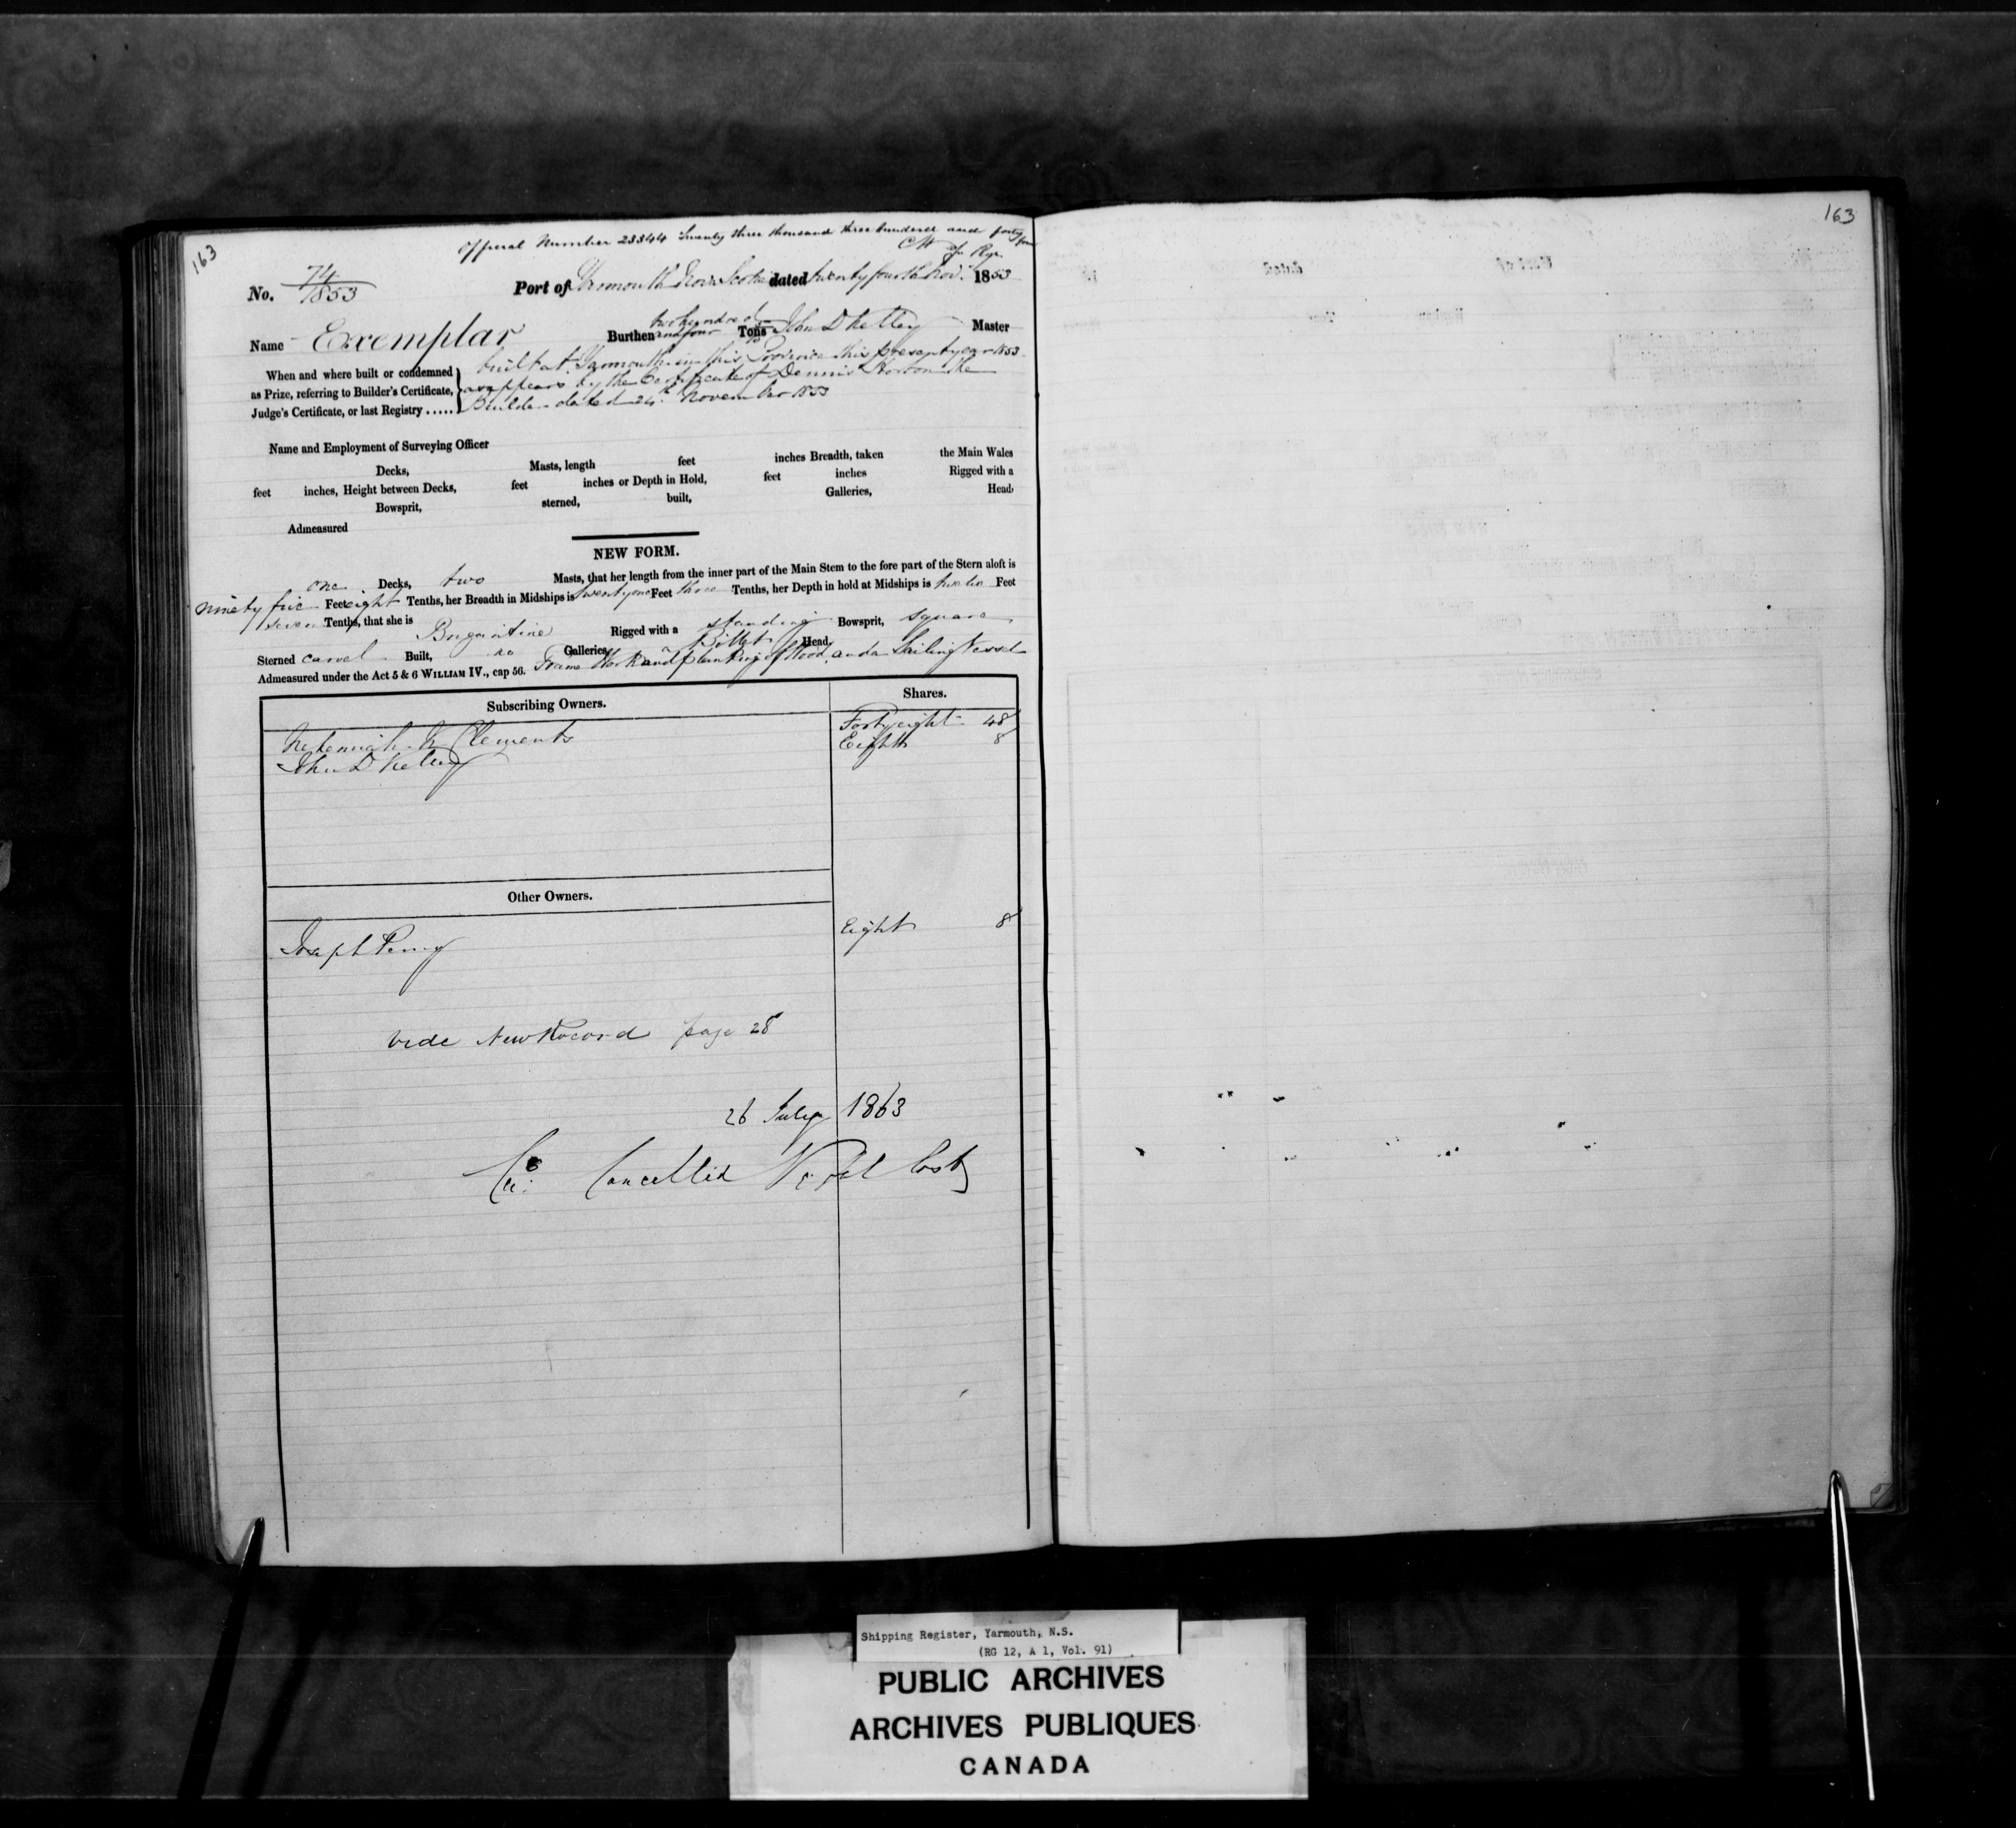 163
Official Number 23344 Twenty three thousand three hundred and forty four
Rgr.
No. 74/1853 Port of Yarmouth Nova Scotia dated twenty fourth Nov. 1853
Name Exemplar Burthen two hundred and four Tons John D Kelley Master
When and where built or condemned as Prize, referring to Builder's Certificate, Judge's Certificate, or last Registry .....
built at Yarmouth in this Province this present year 1853
as appears by the Certificate of Dennis Horton the
Builder dated 24th November 1853
Name and Employment of Surveying Officer
Decks, Masts, length feet inches Breadth, taken the Main Wales
feet inches, Height between Decks, feet inches or Depth in Hold, feet inches Rigged with a
Bowsprit, sterned, built, Galleries, Head,
Admeasured
NEW FORM.
one Decks, two Masts, that her length from the inner part of the Main Stem to the fore part of the Stern aloft is
ninety five Feet eight Tenths, her Breadth in Midships is twenty one Feet three Tenths, her Depth in hold at Midships is twelve Feet
seven Tenths, that she is Brigantine Rigged with a standing Bowsprit, square
Sterned carvel Built, no Galleries, Billet Head,
Admeasured under the Act 5 & 6 WILLIAM IV., cap 56. Frame Work and planking of Wood, and a Sailing Vessel
Subscribing Owners. Shares.
Nehemiah K Clements Forty eight 48
John D Kelley Eight 8
Other Owners.
Joseph Perry Eight 8
Vide New Record page 28
26 July 1863
Cancelled Vessel lost
163
Shipping Register, Yarmouth, N.S.
(RG 12, A 1, Vol. 91)
PUBLIC ARCHIVES
ARCHIVES PUBLIQUES
CANADA